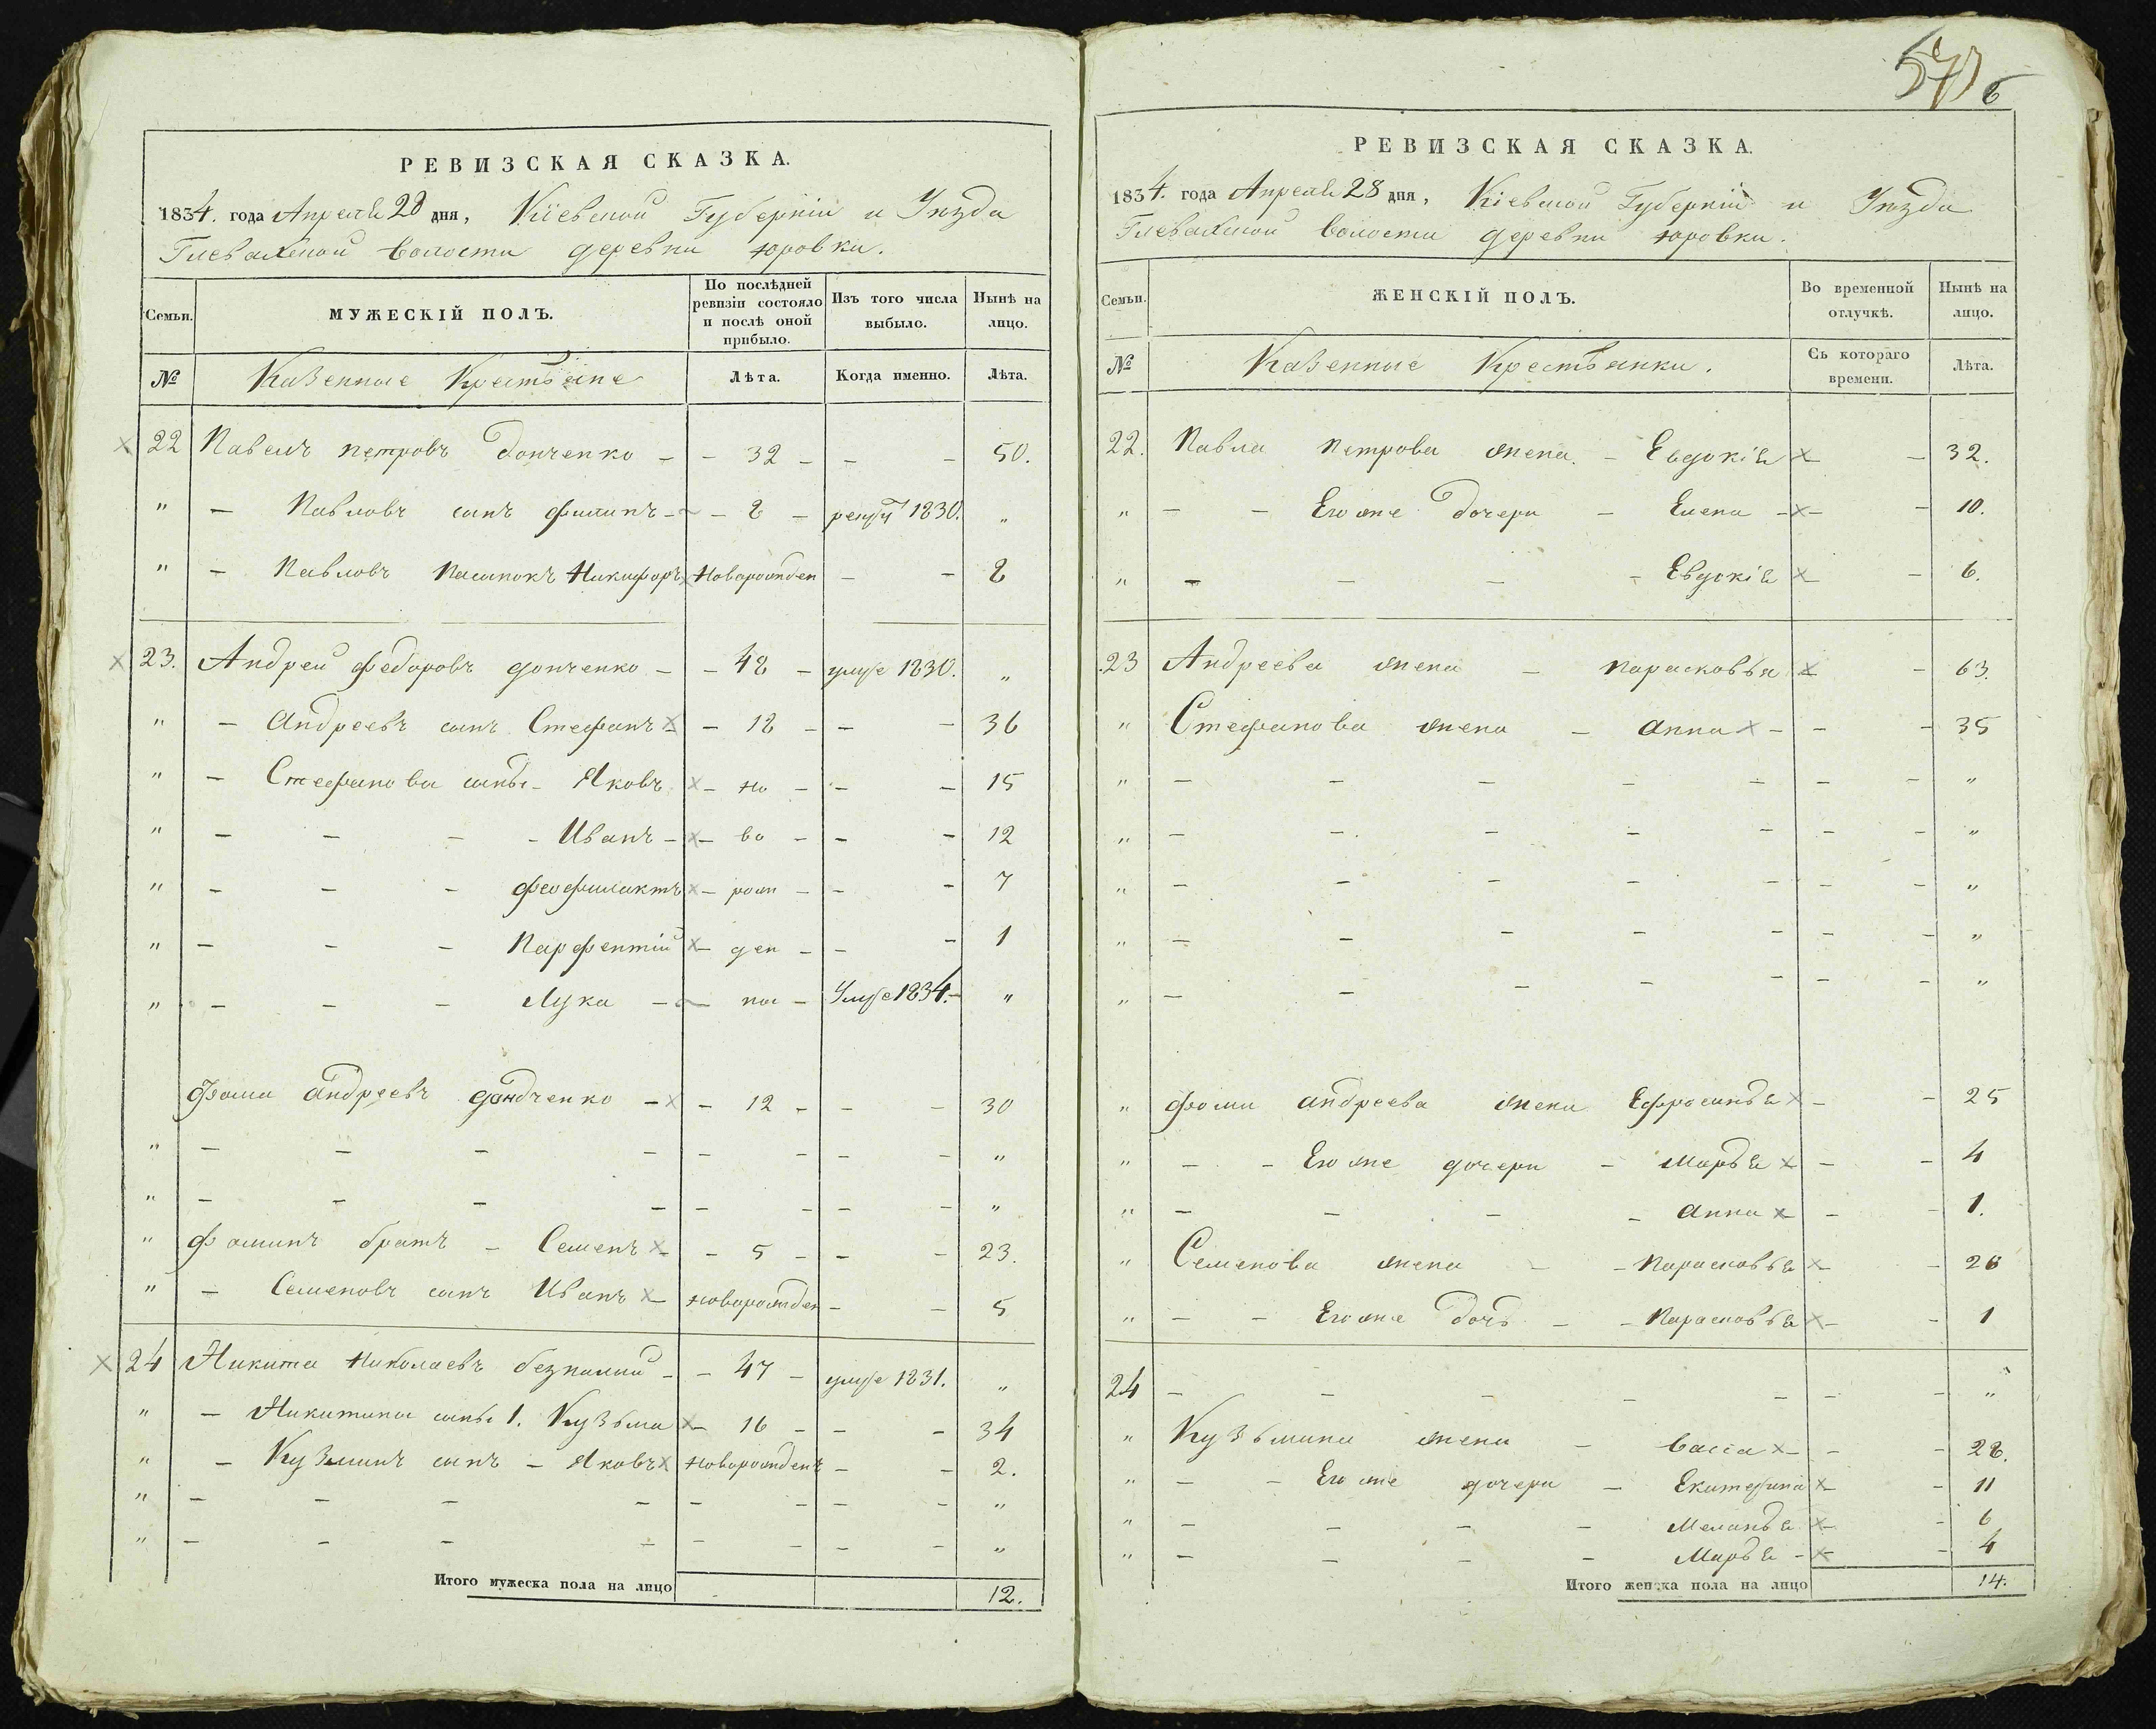 РЕВИЗСКАЯ СКАЗКА.
1834. года Апреля 28 дня, Кіевской Губерніи и Уезда
Глевахской волости деревни Юровки.
Семьи. МУЖЕСКІЙ ПОЛЪ. По послѣдней ревизіи состояло и послѣ оной прибыло. Изъ того числа выбыло. Нынѣ на лицо.
№ Казенные Крестьяне Лѣта. Когда именно. Лѣта.
22 Павелъ Петровъ Донченко - - 32 - - - 50.
" - Павловъ сынъ Филипъ - - 8 - 1830. "
" - Павловъ Пасынокъ Никифоръ Новорожден - - 8
23. Андрей Федоровъ Донченко - - 48 - умре 1830. "
" - Андреевъ сынъ Стефанъ - 18 - - - 36
" - Стефановы сыны - Яковъ - но - - - 15
" - - - - Иванъ - - во - - - 12
" - - - Феофилактъ - рож - - - 7
" - - - Парфентій - ден - - - 1
" - - - Лука - - ны - Умре 1834. - "
Фома Андреевъ Дондченко - - 12 - - - 30
" - - - - - - - - "
" - - - - - - - - "
" Фоминъ братъ - Семенъ - 5 - - - 23.
" - Семеновъ сынъ Иванъ - новорожден - - 5
24 Никита Николаевъ безпалый - - 47 - умре 1831. "
" - Никитины сыны 1. Кузьма - 16 - - - 34
" - Кузминъ сынъ - Яковъ Новорожденъ - - 2.
" - - - - - - - - "
" - - - - - - - - "
Итого мужеска пола на лицо 12.
576
РЕВИЗСКАЯ СКАЗКА.
1834. года Апреля 28 дня, Кіевской Губерніи и Уезда
Глевахской волости деревни Юровки.
Семьи. ЖЕНСКІЙ ПОЛЪ. Во временной отлучкѣ. Нынѣ на лицо.
№ Казенные Крестьянки. Съ котораго времени. Лѣта.
22. Павла Петрова жена - Евдокія - 32.
" - - Его же дочери - Елена - - 10.
" - - - - Евдокія - 6.
23 Андреева жена - Парасковья - 63.
" Стефанова жена - Анна - - - 35
" - - - - - - - "
" - - - - - - - "
" - - - - - - - "
" - - - - - - - "
" - - - - - - "
" Фомы Андреева жена Ефросинья - - 25
" - - Его же дочери - Марья - - 4
" - - - - Анна - - 1.
" Семенова жена - - Парасковья - 26
" - - Его же дочь - - Парасковья - 1
24 - - - - - - "
" Кузьмина жена - Васса - - - 28.
" - - Его же дочери - Екатерина - 11
" - - - - Меланья - 6
" - - - - Марья - - 4
Итого женска пола на лицо 14.